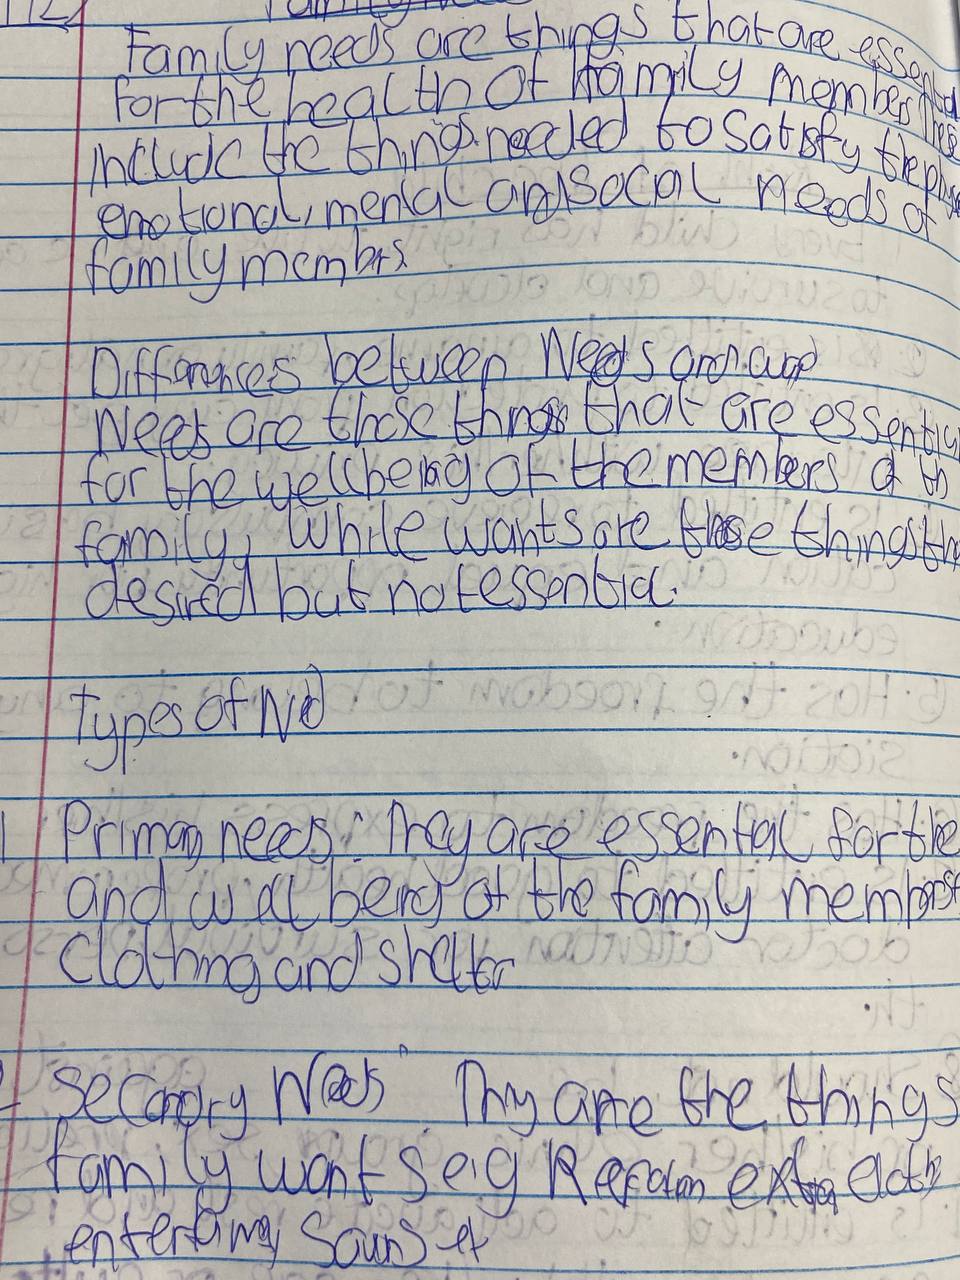 Family needs are things that are essential
for the health of family members These
include the things needed to satisfy the
emotional, mental and social needs of
family membrs
Differences between Needs and
Needs are those things that are essential
for the wellbeing of the members of th
family, while wants are those things th
desired but not essential.
Types of
1 Primary needs: They are essential for the
and wellbeing of the family members
Clothing and shelter
Secondry Needs They are the things
family want s e.g extra